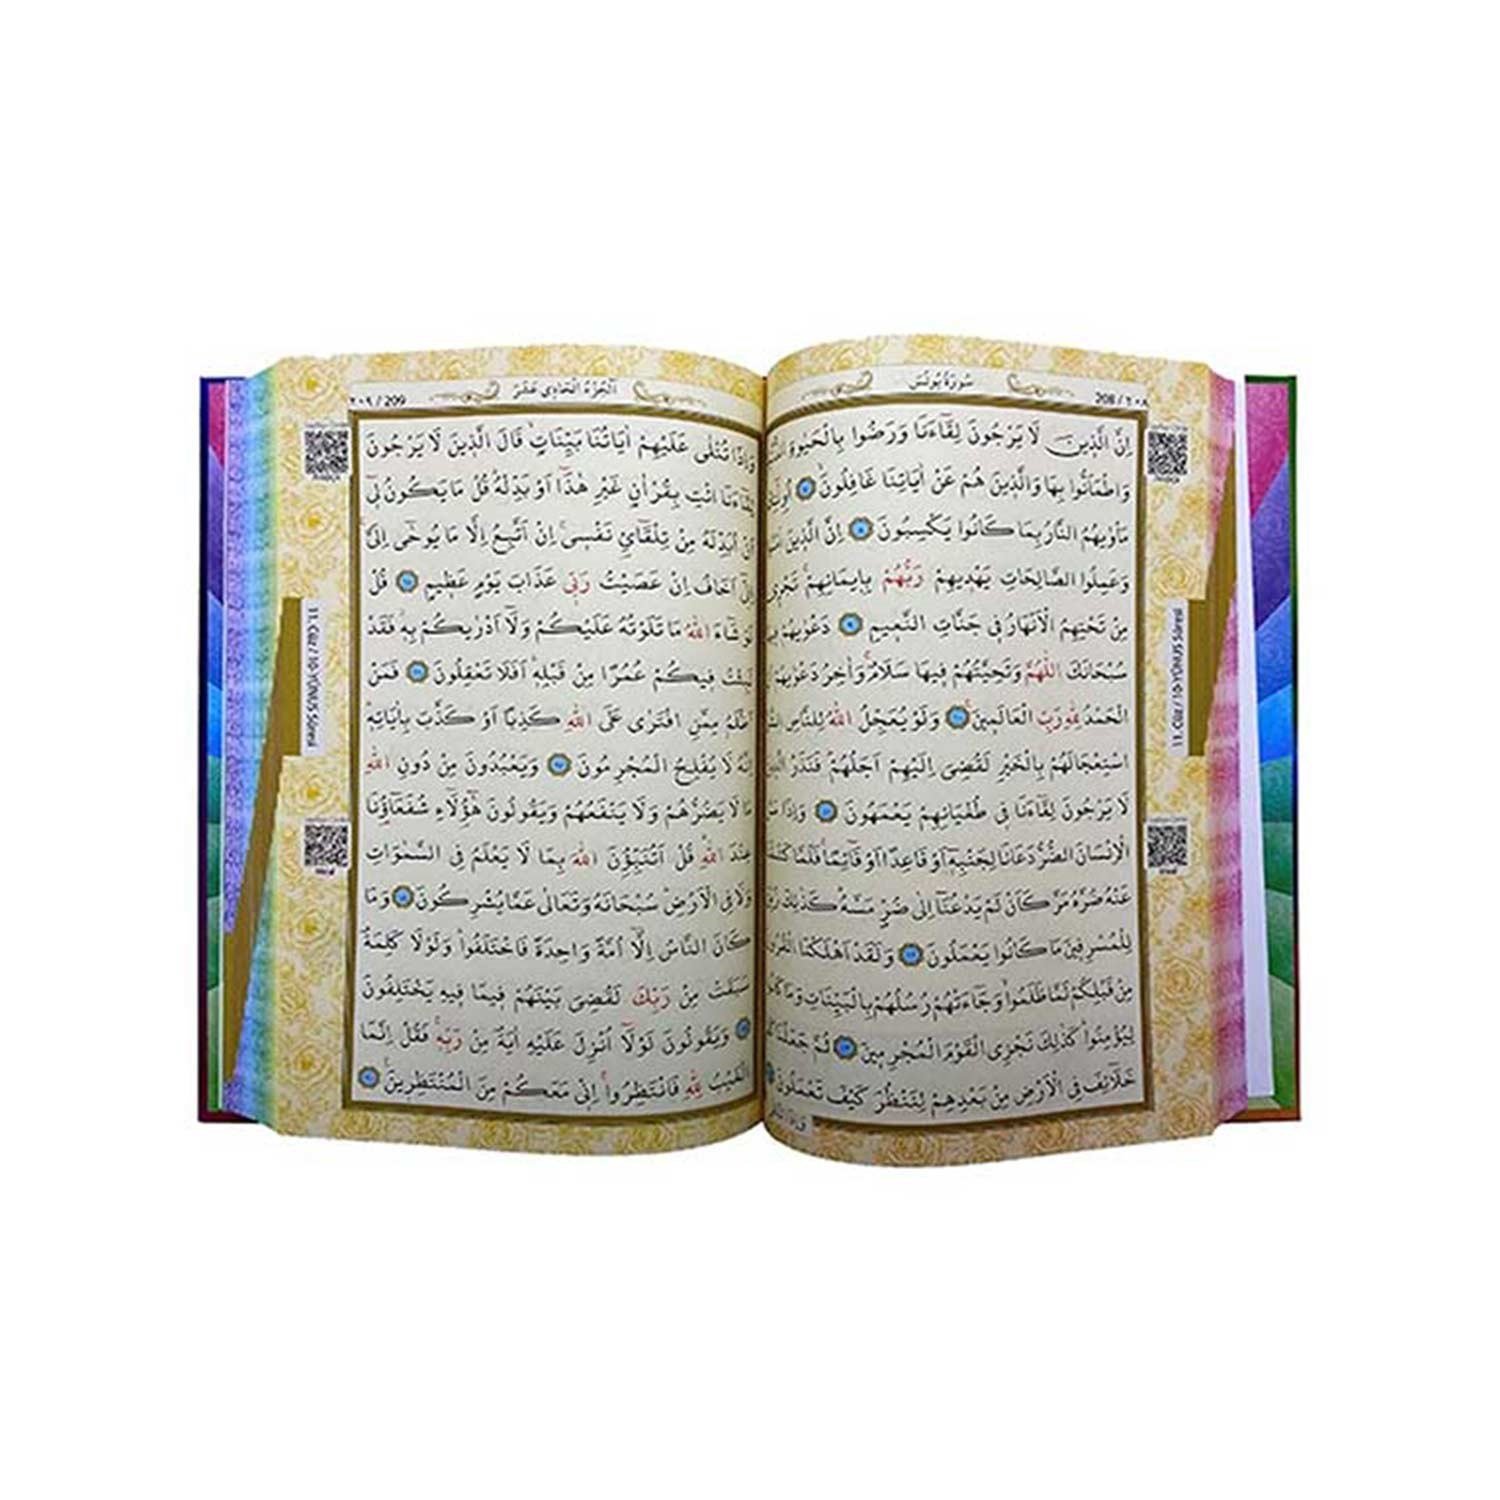 سُورَةُ يُونُسَ
208 / ٢٠٨
اِنَّ الَّذِينَ لَا يَرْجُونَ لِقَٓاءَنَا وَرَضُوا بِالْحَيٰوةِ
وَاطْمَاَنُّوا بِهَا وَالَّذِينَ هُمْ عَنْ اٰيَاتِنَا غَافِلُونَۙ ٧
مَأْوٰيهُمُ النَّارُ بِمَا كَانُوا يَكْسِبُونَ ٨ اِنَّ الَّذِينَ
وَعَمِلُوا الصَّالِحَاتِ يَهْدِيهِمْ رَبُّهُمْ بِاِيمَانِهِمْۚ تَجْرِي
مِنْ تَحْتِهِمُ الْاَنْهَارُ فِي جَنَّاتِ النَّعِيمِ ٩ دَعْوٰيهُمْ
سُبْحَانَكَ اللّٰهُمَّ وَتَحِيَّتُهُمْ فِيهَا سَلَامٌۚ وَاٰخِرُ دَعْوٰيهُمْ
الْحَمْدُ لِلّٰهِ رَبِّ الْعَالَمِينَ۟ ١٠ وَلَوْ يُعَجِّلُ اللّٰهُ لِلنَّاسِ
اسْتِعْجَالَهُمْ بِالْخَيْرِ لَقُضِيَ اِلَيْهِمْ اَجَلُهُمْۜ فَنَذَرُ
لَا يَرْجُونَ لِقَٓاءَنَا فِي طُغْيَانِهِمْ يَعْمَهُونَ ١١ وَاِذَا
الْاِنْسَانَ الضُّرُّ دَعَانَا لِجَنْبِهِٓ اَوْ قَاعِدًا اَوْ قَٓائِمًاۚ فَلَمَّا
عَنْهُ ضُرَّهُ مَرَّ كَاَنْ لَمْ يَدْعُنَٓا اِلٰى ضُرٍّ مَسَّهُۜ كَذٰلِكَ
لِلْمُسْرِفِينَ مَا كَانُوا يَعْمَلُونَ ١٢ وَلَقَدْ اَهْلَكْنَا
مِنْ قَبْلِكُمْ لَمَّا ظَلَمُواۙ وَجَٓاءَتْهُمْ رُسُلُهُمْ بِالْبَيِّنَاتِ وَمَا
لِيُؤْمِنُواۜ كَذٰلِكَ نَجْزِي الْقَوْمَ الْمُجْرِمِينَ ١٣ ثُمَّ
خَلَٓائِفَ فِي الْاَرْضِ مِنْ بَعْدِهِمْ لِنَنْظُرَ كَيْفَ تَعْمَلُونَ
11. Cüz / 10-YÛNUS Sûresi
اَلْجُزْءُ الْحَادِي عَشَرَ
٢٠٩ / 209
وَاِذَا تُتْلٰى عَلَيْهِمْ اٰيَاتُنَا بَيِّنَاتٍۙ قَالَ الَّذِينَ لَا يَرْجُونَ
لِقَٓاءَنَا ائْتِ بِقُرْاٰنٍ غَيْرِ هٰذَٓا اَوْ بَدِّلْهُۜ قُلْ مَا يَكُونُ لِٓي
اَنْ اُبَدِّلَهُ مِنْ تِلْقَٓائِ۬ نَفْسِيۚ اِنْ اَتَّبِعُ اِلَّا مَا يُوحٰٓى اِلَيَّۚ
اِنِّٓي اَخَافُ اِنْ عَصَيْتُ رَبِّي عَذَابَ يَوْمٍ عَظِيمٍ ١٥ قُلْ
لَوْ شَٓاءَ اللّٰهُ مَا تَلَوْتُهُ عَلَيْكُمْ وَلَٓا اَدْرٰيكُمْ بِهِۘ فَقَدْ
لَبِثْتُ فِيكُمْ عُمُرًا مِنْ قَبْلِهِۜ اَفَلَا تَعْقِلُونَ ١٦ فَمَنْ
اَظْلَمُ مِمَّنِ افْتَرٰى عَلَى اللّٰهِ كَذِبًا اَوْ كَذَّبَ بِاٰيَاتِهِۜ
اِنَّهُ لَا يُفْلِحُ الْمُجْرِمُونَ ١٧ وَيَعْبُدُونَ مِنْ دُونِ اللّٰهِ
مَا لَا يَضُرُّهُمْ وَلَا يَنْفَعُهُمْ وَيَقُولُونَ هٰٓؤُ۬لَٓاءِ شُفَعَٓاؤُ۬نَا
عِنْدَ اللّٰهِۜ قُلْ اَتُنَبِّؤُ۫نَ اللّٰهَ بِمَا لَا يَعْلَمُ فِي السَّمٰوَاتِ
وَلَا فِي الْاَرْضِۜ سُبْحَانَهُ وَتَعَالٰى عَمَّا يُشْرِكُونَ ١٨ وَمَا
كَانَ النَّاسُ اِلَّٓا اُمَّةً وَاحِدَةً فَاخْتَلَفُواۜ وَلَوْلَا كَلِمَةٌ
سَبَقَتْ مِنْ رَبِّكَ لَقُضِيَ بَيْنَهُمْ فِيمَا فِيهِ يَخْتَلِفُونَ
١٩ وَيَقُولُونَ لَوْلَٓا اُنْزِلَ عَلَيْهِ اٰيَةٌ مِنْ رَبِّهِۚ فَقُلْ اِنَّمَا
الْغَيْبُ لِلّٰهِ فَانْتَظِرُواۚ اِنِّي مَعَكُمْ مِنَ الْمُنْتَظِرِينَ۟ ٢٠
11. Cüz / 10-YÛNUS Sûresi